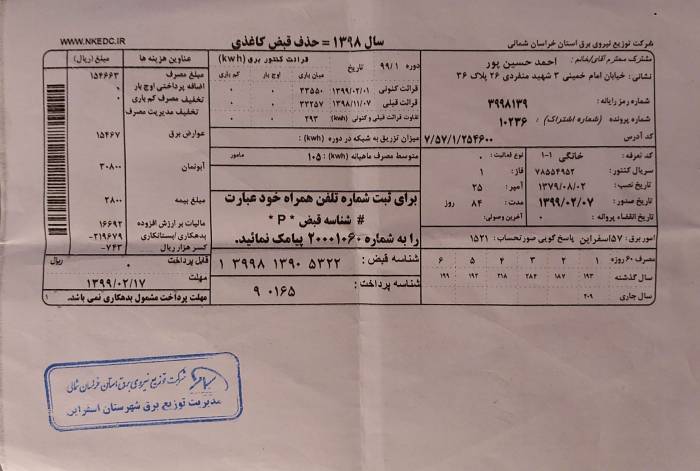 شرکت توزیع نیروی برق استان خراسان شمالی
سال ۱۳۹۸ = حذف قبض کاغذی
WWW.NKEDC.IR
مشترک محترم آقای/خانم : احمد حسین پور
نشانی : خیابان امام خمینی ۳ شهید منفردی ۲۶ پلاک ۳۶
شماره رمز رایانه : ۳۹۹۸۱۳۹
شماره پرونده (شماره اشتراک) : ۱۰۲۳۶
کد آدرس ۷/۵۷/۱/۲۵۴۶۰۰
کد تعرفه : خانگی ۱-۱ نوع فعالیت : ۰
سریال کنتور : ۷۸۵۵۴۹۵۲ فاز : ۱
تاریخ نصب : ۱۳۷۹/۰۸/۰۲ آمپر : ۲۵
تاریخ صدور : ۱۳۹۹/۰۲/۰۷ مدت : ۸۴ روز
تاریخ انقضاء پروانه : ۰ آخرین وصولی :
امور برق : ۵۷اسفراین پاسخ گویی صورتحساب : ۱۵۲۱
مصرف ۶۰ روزه ۱ ۲ ۳ ۴ ۵ ۶
سال گذشته ۱۹۳ ۱۸۷ ۲۸۴ ۲۱۸ ۱۹۲ ۱۹۹
سال جاری ۲۰۹
دوره ۹۹/۱ قرائت کنتور برق (kwh)
تاریخ میان باری اوج بار کم باری
قرائت کنونی ۱۳۹۹/۰۲/۰۱ ۳۳۵۵۰ ۰ ۰
قرائت قبلی ۱۳۹۸/۱۱/۰۷ ۳۳۲۵۷ ۰ ۰
تفاوت قرائت قبلی و کنونی ۲۹۳ ۰ ۰
میزان تزریق به شبکه در دوره (kwh) :
متوسط مصرف ماهیانه (kwh) : ۱۰۵ مامور
برای ثبت شماره تلفن همراه خود عبارت
# شناسه قبض * P *
را به شماره ۲۰۰۰۱۰۶۰ پیامک نمائید.
شناسه قبض : ۱ ۳۹۹۸ ۱۳۹۰ ۵۳۲۲
شناسه پرداخت : ۹۰۱۶۵
عناوین هزینه ها مبلغ (ریال)
مبلغ مصرف ۱۵۴۶۶۳
اضافه پرداختی اوج بار ۰
تخفیف مصرف کم باری ۰
تخفیف مدیریت مصرف
عوارض برق ۱۵۴۶۷
آبونمان ۳۰۸۰۰
مبلغ بیمه ۲۸۰۰
مالیات بر ارزش افزوده ۱۶۶۹۲
بدهکاری/بستانکاری -۲۱۹۶۷۹
کسر هزار ریال -۷۴۳
قابل پرداخت ۰ ریال
مهلت ۱۳۹۹/۰۲/۱۷
مهلت پرداخت مشمول بدهکاری نمی باشد.
شرکت توزیع نیروی برق استان خراسان شمالی
مدیریت توزیع برق شهرستان اسفراین